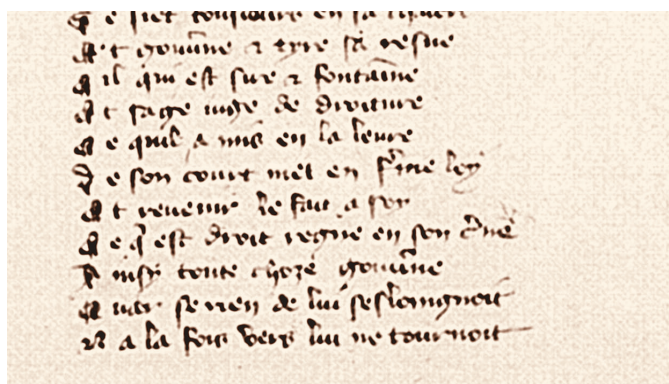 Q e siet tousiours en sa chaere
E t gouuͤne ⁊ tyre sa resne
C il qui est sire ⁊ fontaine
E t sage iuge de droiture
C e quil a mis en la leure
D e son court met en fͤme ley
E t reuenir le fait a soy
C e q̄ est droit regne en son
A insy toute choze gouuͤne
C uar se rien de lui seslongnoit
Et a la fois vers lui ne tournoit